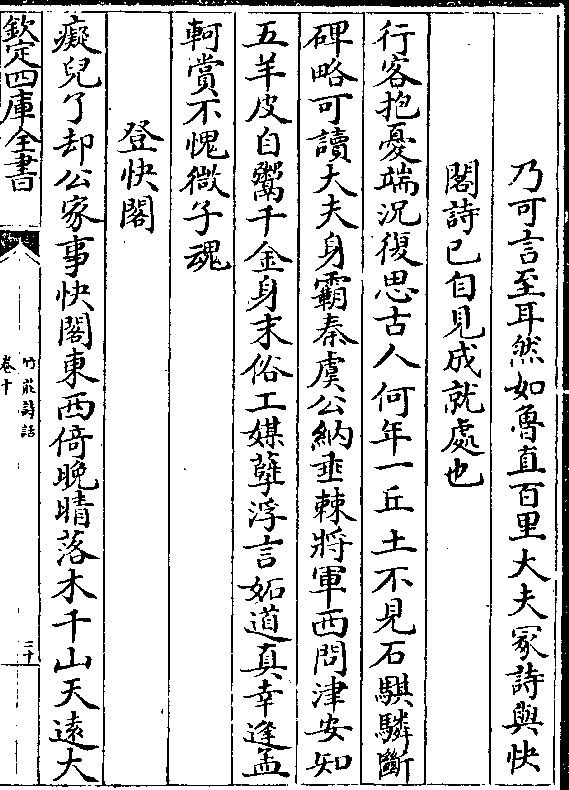 乃可言至耳然如魯直百里大夫冢詩與快
閣詩已自見成就處也
行客抱憂端況復思古人何年一丘土不見石騏驎斷
碑略可讀大夫身霸秦虞公納垂棘將軍西問津安知
五羊皮自鬻千金身末俗工媒孽浮言妬道真幸逢孟
軻賞不愧微子魂
登快閣
癡兒了却公家事快閣東西倚晚晴落木千山天逺大
欽定四庫全書
竹莊詩話
卷十
二十